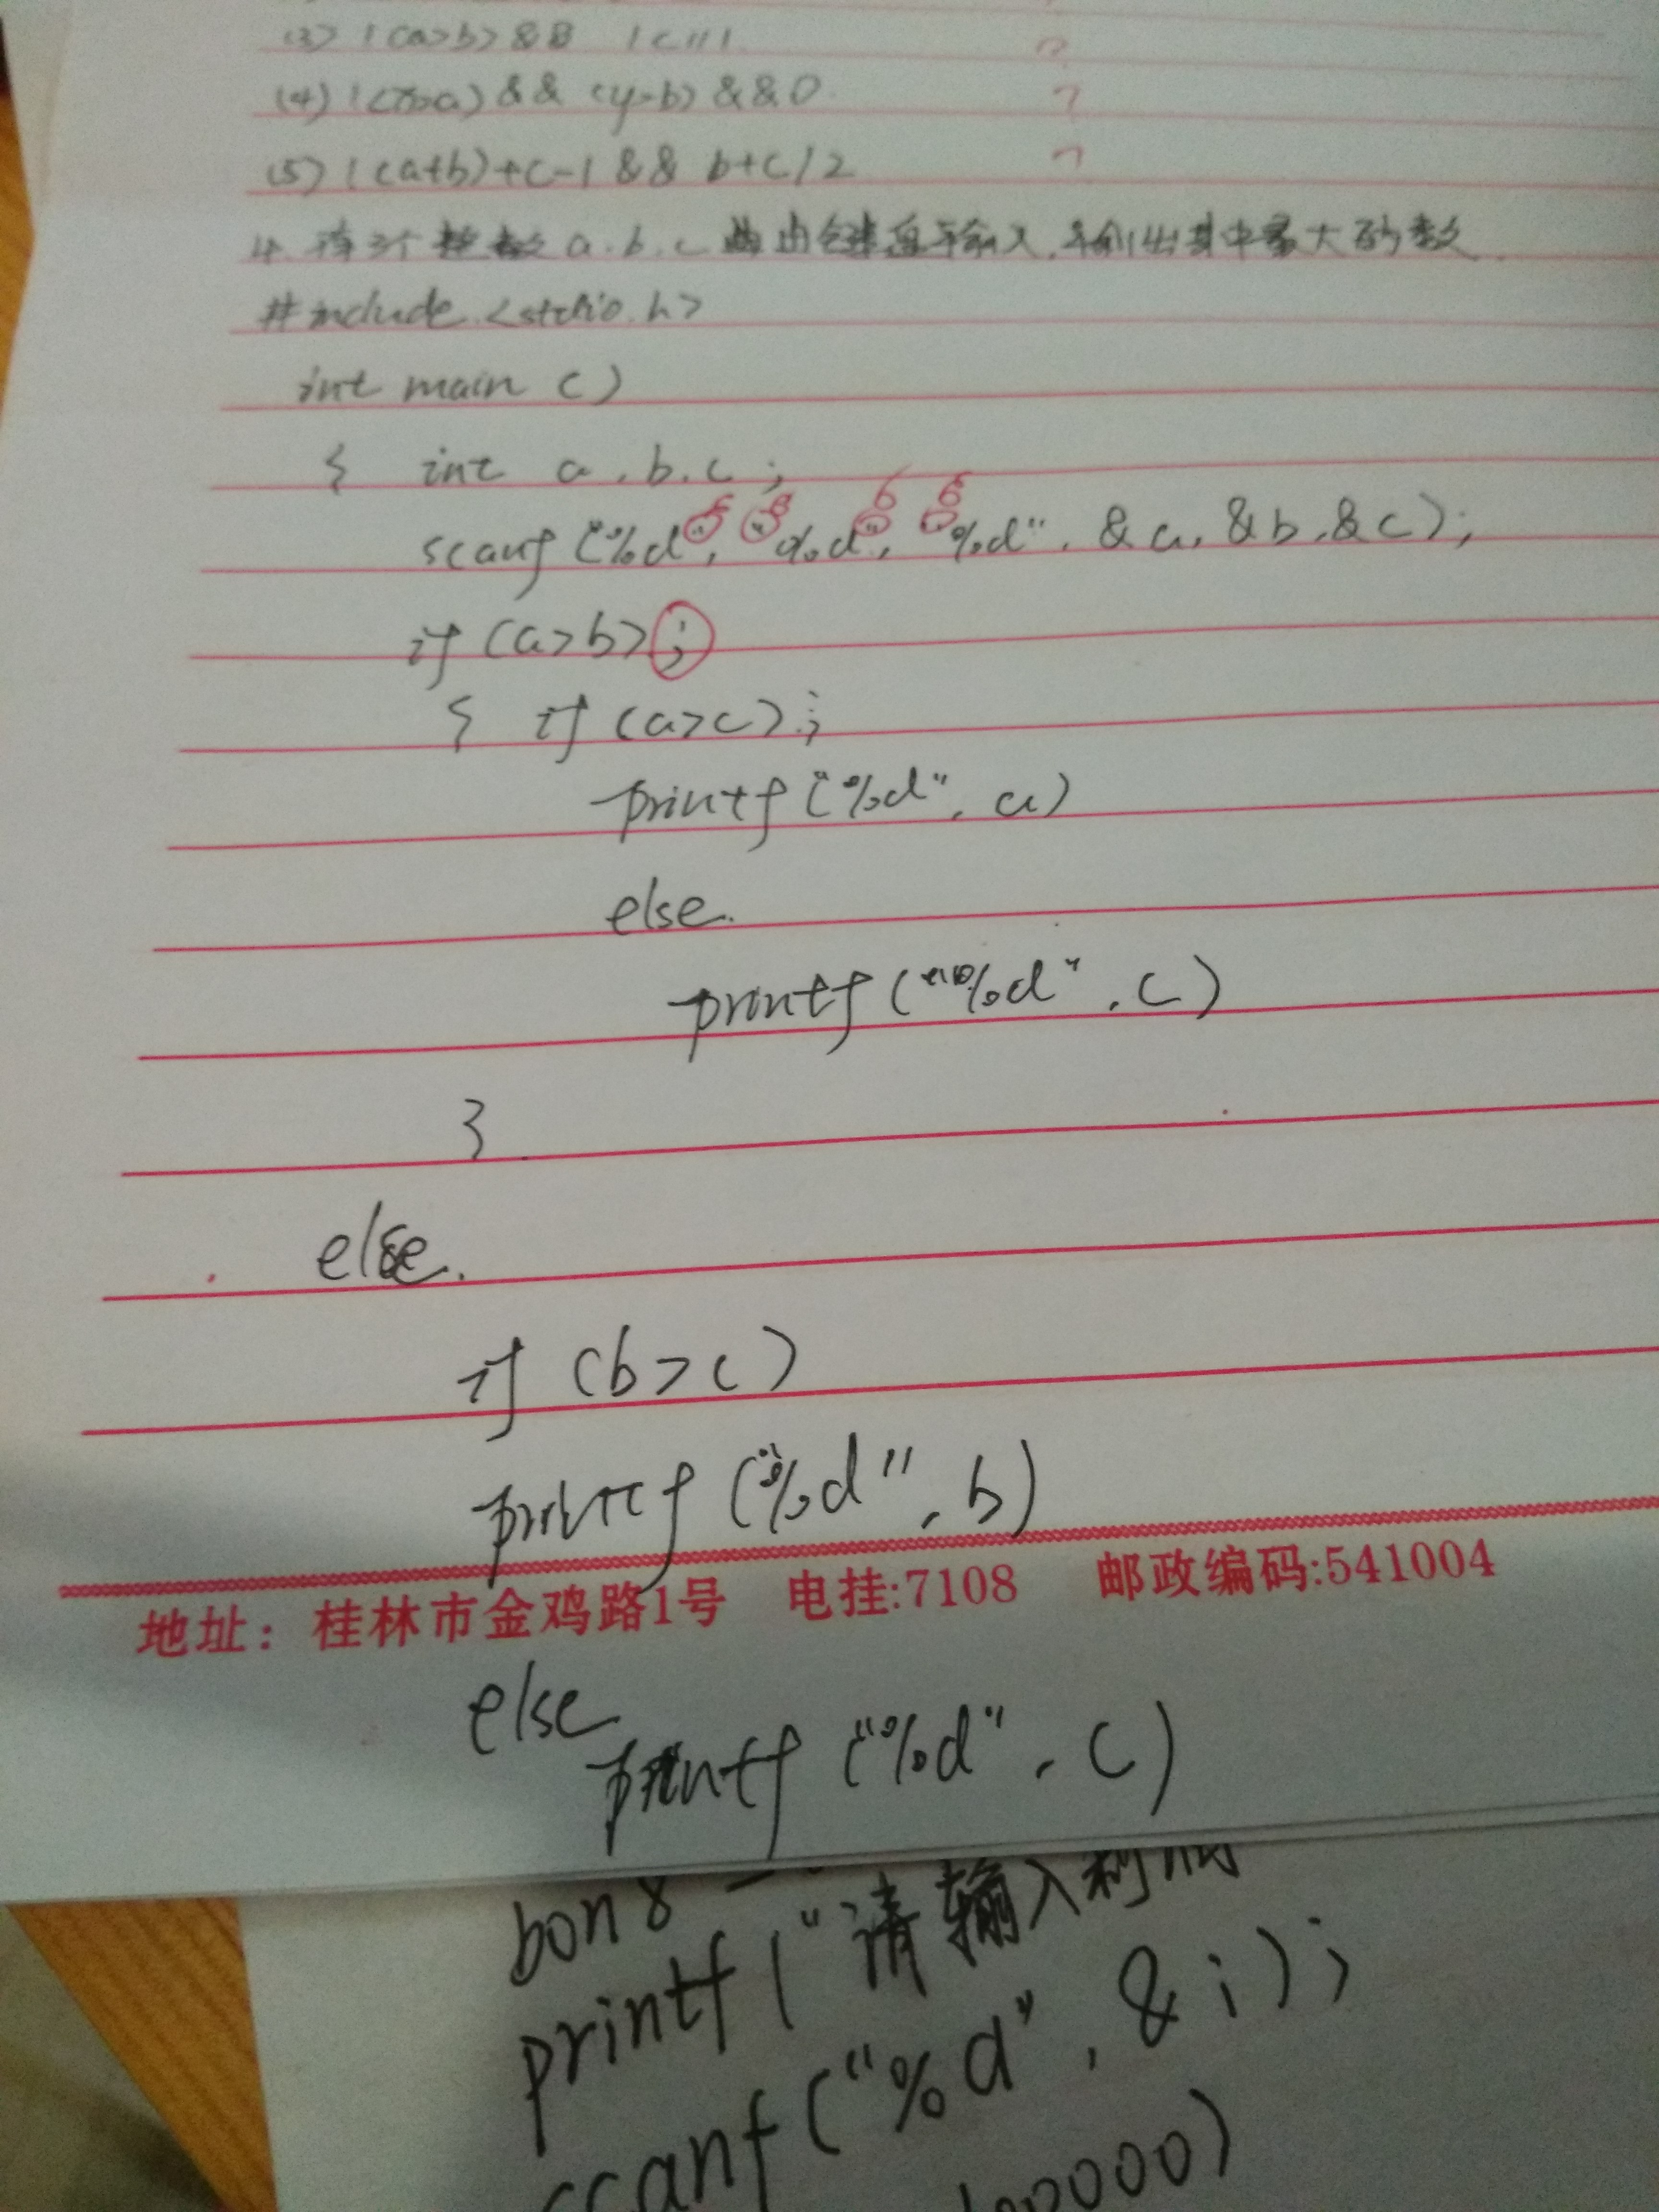 (3) !(a>b) && !c||1
(4) !(x=a) && (y=b) && 0
(5) !(a+b)+c-1 && b+c/2
4. 有3个整数a.b.c 由键盘输入,输出其中最大的数.
#include <stdio.h>
int main ()
{ int a,b,c;
scanf ("%d", "%d", "%d", &a, &b, &c);
if (a>b);
{ if (a>c);
printf ("%d", a)
else
printf ("%d", c)
}
else
if (b>c)
printf ("%d", b)
地址:桂林市金鸡路1号 电挂:7108 邮政编码:541004
else
printf ("%d", c)
printf ("请输入利润
scanf ("%d", &i);